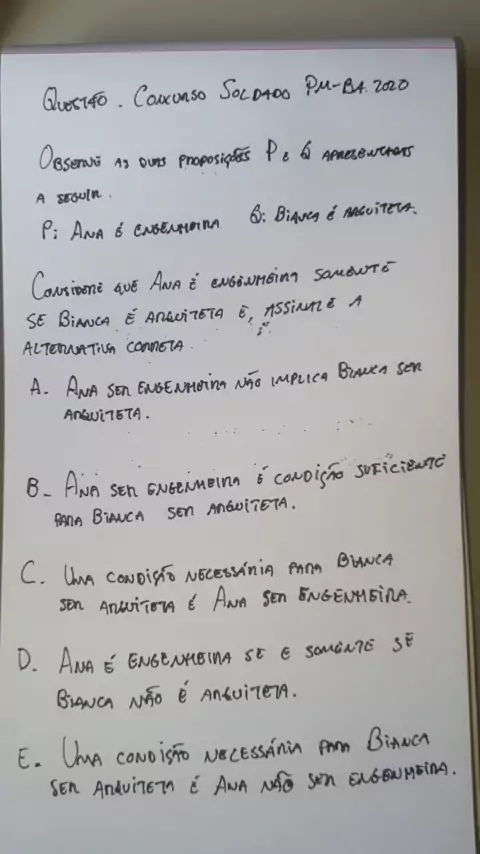 QUESTÃO. CONCURSO SOLDADO PM-BA. 2020
OBSERVE AS DUAS PROPOSIÇÕES P E Q APRESENTADAS
A SEGUIR.
P: ANA É ENGENHEIRA Q: BIANCA É ARQUITETA.
CONSIDERE QUE ANA É ENGENHEIRA SOMENTE
SE BIANCA É ARQUITETA E, ASSINALE A
ALTERNATIVA CORRETA.
A. ANA SER ENGENHEIRA NÃO IMPLICA BIANCA SER
ARQUITETA.
B- ANA SER ENGENHEIRA É CONDIÇÃO SUFICIENTE
PARA BIANCA SER ARQUITETA.
C. UMA CONDIÇÃO NECESSÁRIA PARA BIANCA
SER ARQUITETA É ANA SER ENGENHEIRA.
D. ANA É ENGENHEIRA SE E SOMENTE SE
BIANCA NÃO É ARQUITETA.
E. UMA CONDIÇÃO NECESSÁRIA PARA BIANCA
SER ARQUITETA É ANA NÃO SER ENGENHEIRA.